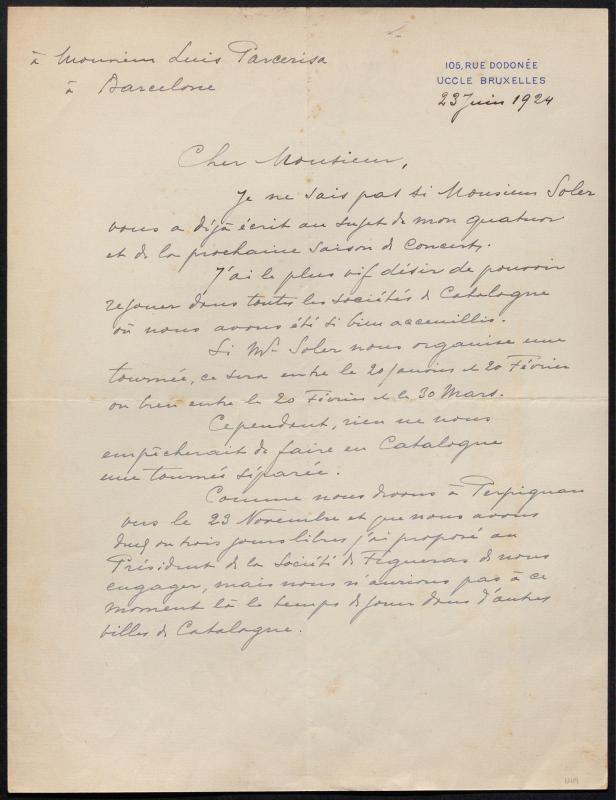 à Monsieur Luis Parcerisa
à Barcelone
105, RUE DODONÉE
UCCLE BRUXELLES
23 Juin 1924
Cher Monsieur,
Je ne sais pas si Monsieur Soler
vous a déjà écrit au sujet de mon quatuor
et de la prochaine saison de Concerts.
J'ai le plus vif désir de pouvoir
rejouer dans toutes les sociétés de Catalogne
où nous avons été si bien acceuillis.
Si Mr Soler nous organise une
tournée, ce sera entre le 20 Janvier et 20 Février
ou bien entre le 20 Février et le 30 Mars.
Cependant, rien ne nous
empêcherait de faire en Catalogne
une tournée séparée.
Comme nous devons à Perpignan
vers le 23 Novembre et que nous avons
deux ou trois jours libres j'ai proposé au
Président de la Société de Figueras de nous
engager, mais nous n'aurions pas à ce
moment là le temps de jouer dans d'autres
villes de Catalogne.